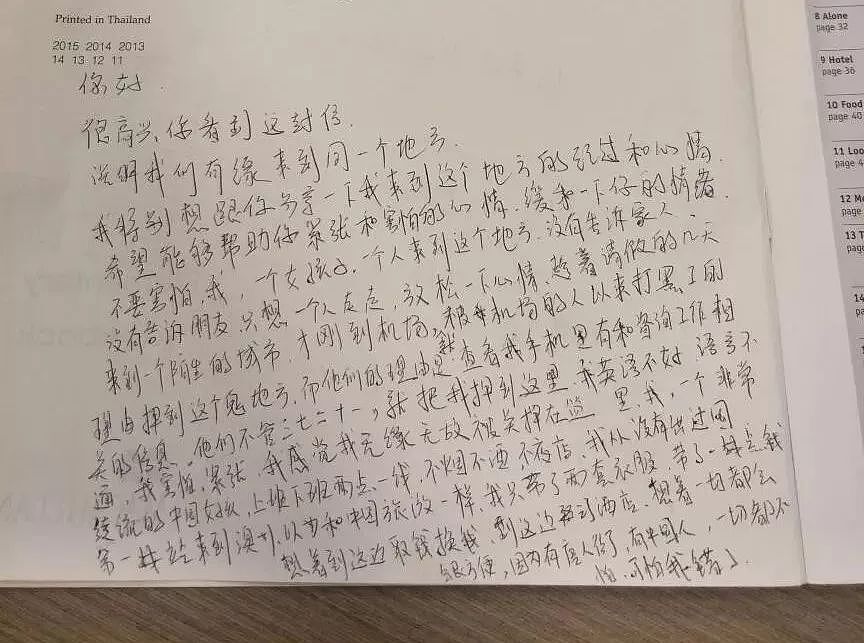 Printed in Thailand
2015 2014 2013
14 13 12 11
你好.
很高兴,你看到这封信.
说明我们有缘来到同一个地方.
我特别想跟你分享一下我来到这个地方的经过和心情.
希望能够帮助你紧张和害怕的心情.缓和一下你的情绪.
不要害怕,我,一个女孩子.一个人来到这个地方.没有告诉家人、
没有告诉朋友.只想一个人走走,放松一下心情,趁着请假的几天
来到一个陌生的城市,才刚到机场,被机场的人以来打黑工的
理由押到这个鬼地方.而他们的理由是查看我手机里有和咨询工作相
关的信息.他们不管三七二十一,就把我押到这里.我英语不好.语言不
通,我害怕,紧张.我感觉我无缘无故被关押在这里.我,一个非常
传统的中国女孩,上班下班两点一线,不烟不酒不夜店.我从没有出过国
第一站就来到澳州.以为和中国旅游一样.我只带了两套衣服.带了一些钱
想着到这边取钱换钱.到这边再订酒店.想着一切都会
很方便,因为有唐人街,有中国人,一切都不
怕.可怕我错了.
8 Alone
page 32
9 Hotel
page 36
10 Food
page 40
11 Loo
page 4
12 M
page
13 T
page
14